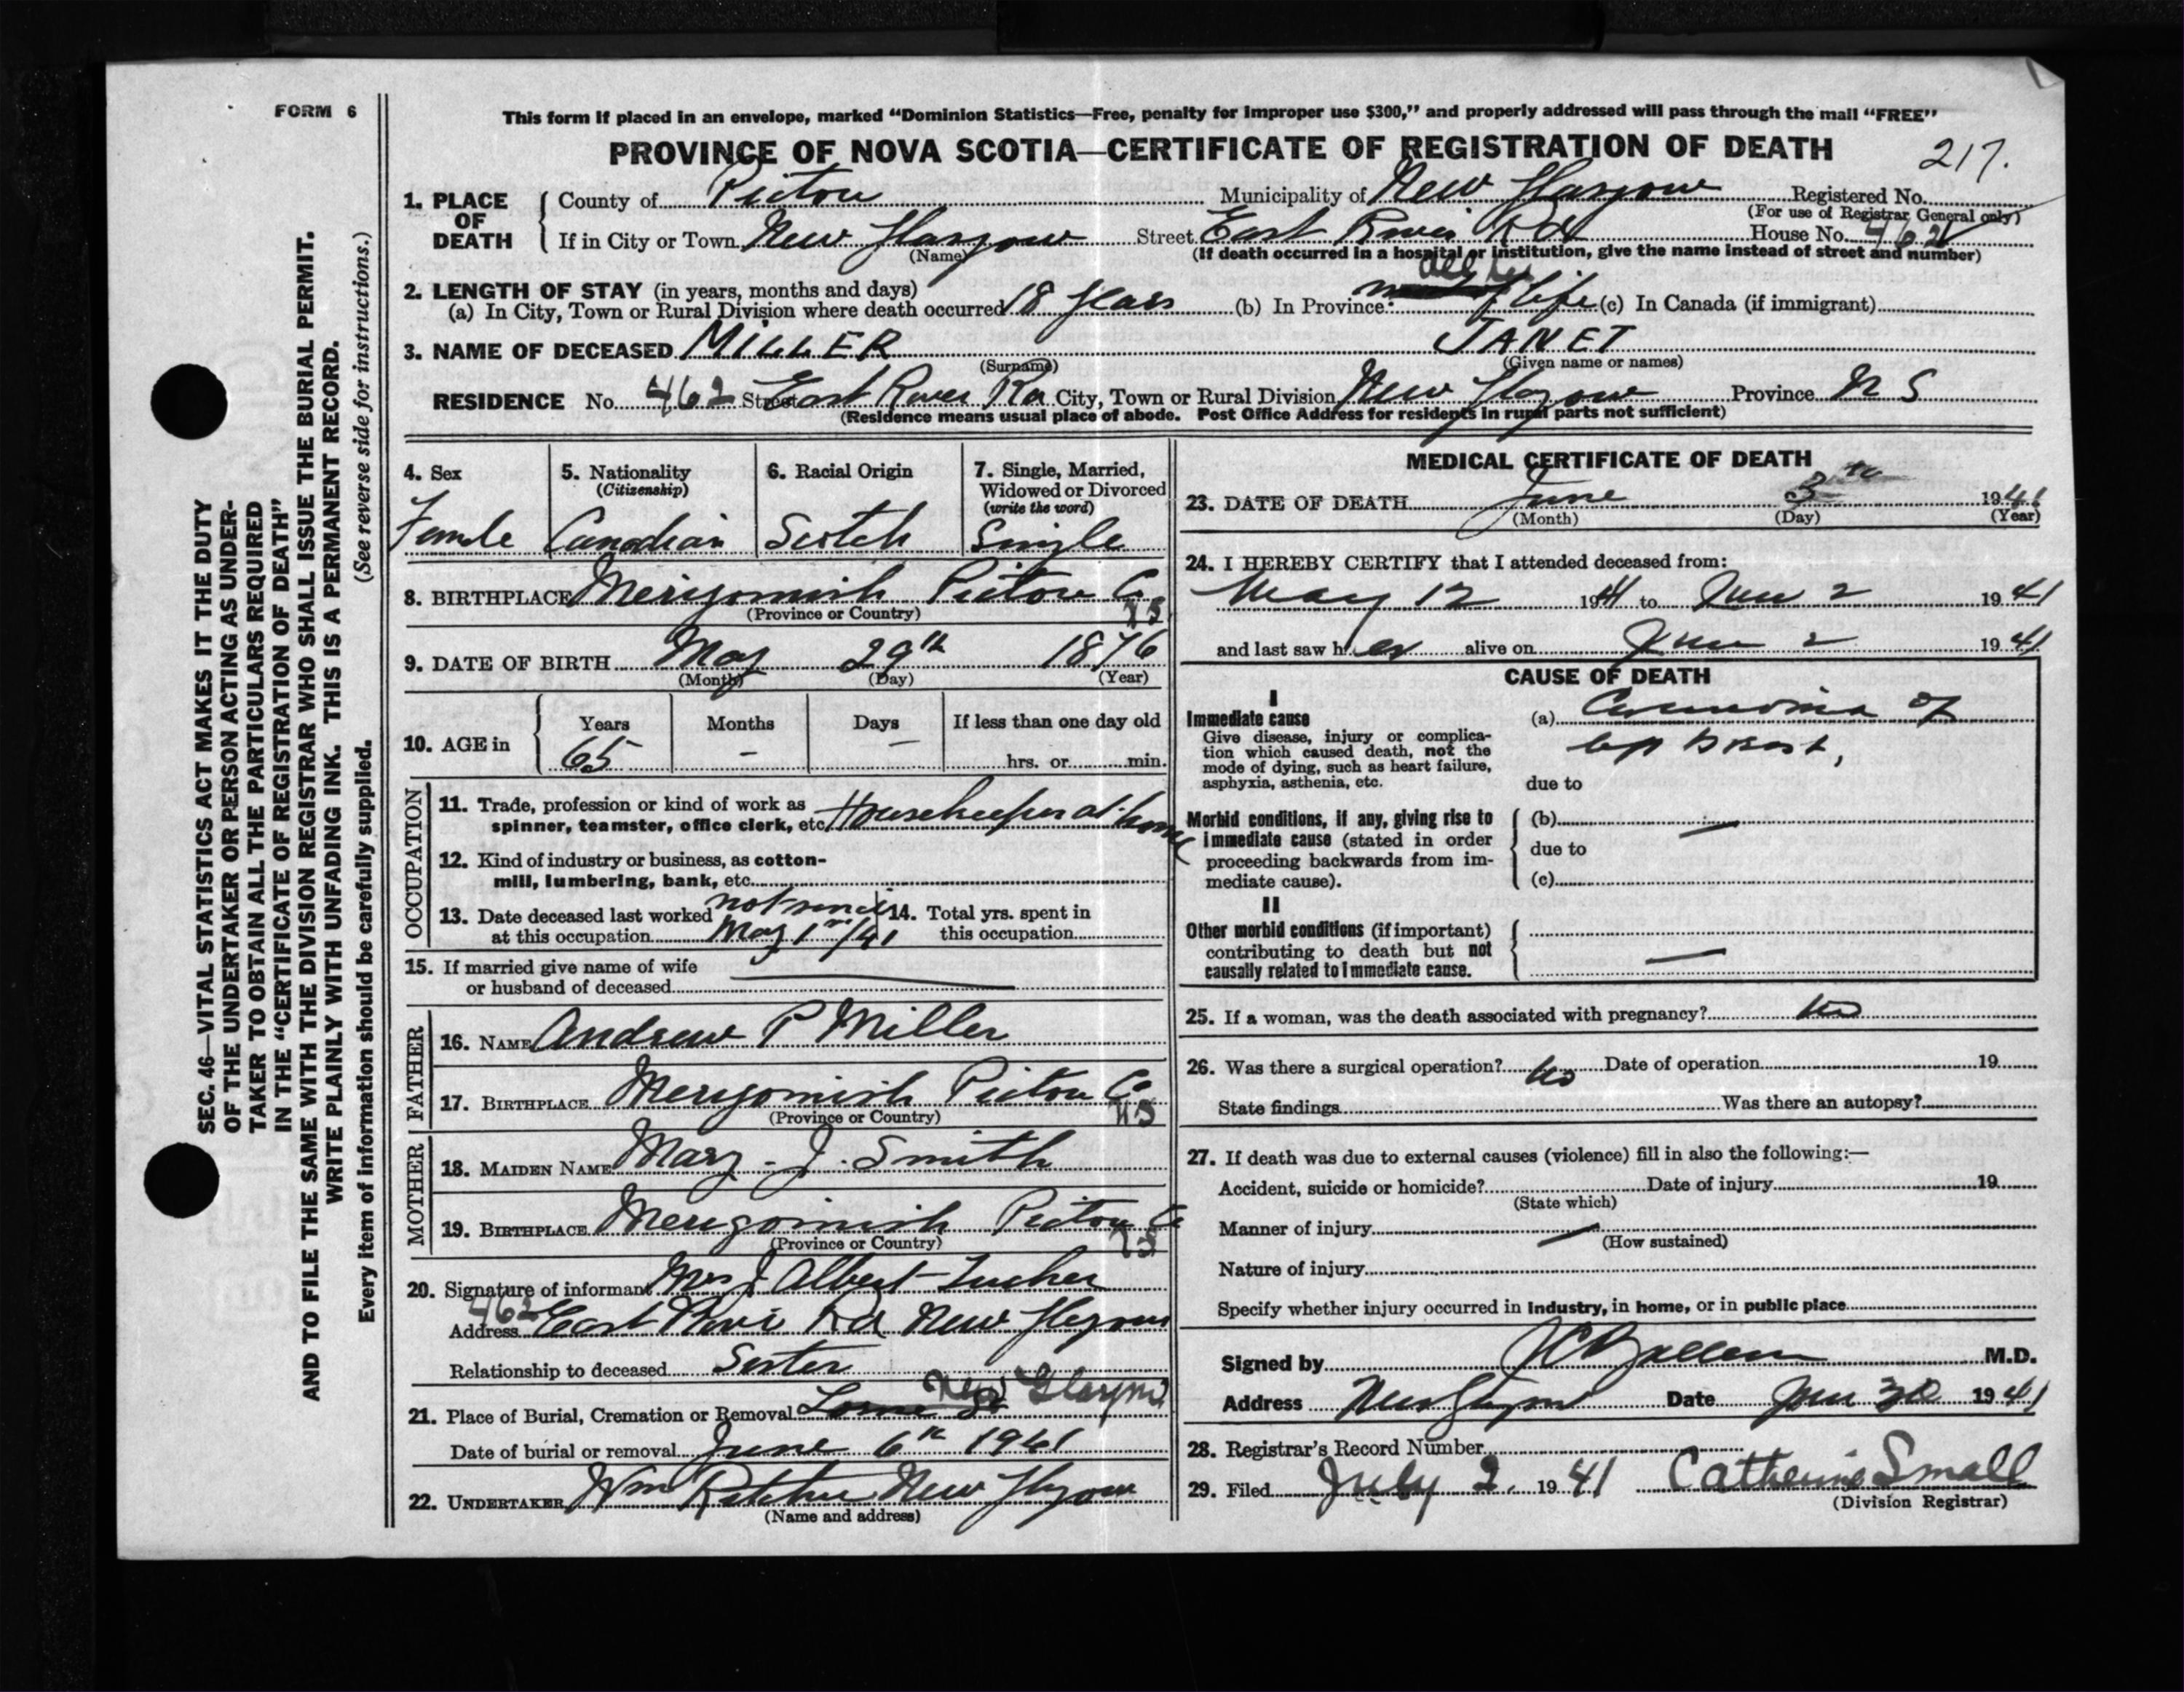 FORM 6
This form if placed in an envelope, marked "Dominion Statistics—Free, penalty for improper use $300," and properly addressed will pass through the mail "FREE"
PROVINCE OF NOVA SCOTIA—CERTIFICATE OF REGISTRATION OF DEATH
217.
1. PLACE OF DEATH
County of Pictou Municipality of New Glasgow Registered No.
(For use of Registrar General only)
If in City or Town New Glasgow Street East River Rd House No. 462
(Name) (If death occurred in a hospital or institution, give the name instead of street and number)
2. LENGTH OF STAY (in years, months and days)
(a) In City, Town or Rural Division where death occurred 18 years (b) In Province all her life (c) In Canada (if immigrant)
3. NAME OF DECEASED MILLER JANET
(Surname) (Given name or names)
RESIDENCE No. 462 Street East River Rd City, Town or Rural Division New Glasgow Province N S
(Residence means usual place of abode. Post Office Address for residents in rural parts not sufficient)
4. Sex
Female
5. Nationality
(Citizenship)
Canadian
6. Racial Origin
Scotch
7. Single, Married,
Widowed or Divorced
(write the word)
Single
8. BIRTHPLACE Merigomish Pictou Co
NS
(Province or Country)
9. DATE OF BIRTH May 29th 1876
(Month) (Day) (Year)
10. AGE in
Years Months Days If less than one day old
65 - - hrs. or min.
OCCUPATION
11. Trade, profession or kind of work as
spinner, teamster, office clerk, etc. Housekeeper at home
12. Kind of industry or business, as cotton-
mill, lumbering, bank, etc.
13. Date deceased last worked not since
at this occupation May 1st/41
14. Total yrs. spent in
this occupation
15. If married give name of wife
or husband of deceased
FATHER
16. NAME Andrew P Miller
17. BIRTHPLACE Merigomish Pictou Co
NS
(Province or Country)
MOTHER
18. MAIDEN NAME Mary - J. Smith
19. BIRTHPLACE Merigomish Pictou Co
NS
(Province or Country)
20. Signature of informant Mrs J Albert
Address 462 East River Rd New Glasgow
Relationship to deceased Sister
21. Place of Burial, Cremation or Removal Lorne St New Glasgow
Date of burial or removal June 6th 1941
22. UNDERTAKER Wm Ritchie New Glasgow
(Name and address)
MEDICAL CERTIFICATE OF DEATH
23. DATE OF DEATH June 3 1941
(Month) (Day) (Year)
24. I HEREBY CERTIFY that I attended deceased from:
May 12 1941 to June 2 1941
and last saw her alive on June 2 1941
CAUSE OF DEATH
I
Immediate cause
Give disease, injury or complica-
tion which caused death, not the
mode of dying, such as heart failure,
asphyxia, asthenia, etc.
(a) Carcinoma of
left breast,
due to
Morbid conditions, if any, giving rise to
immediate cause (stated in order
proceeding backwards from im-
mediate cause).
(b) —
due to
(c)
II
Other morbid conditions (if important)
contributing to death but not
causally related to immediate cause.
—
25. If a woman, was the death associated with pregnancy? No
26. Was there a surgical operation? No Date of operation 19
State findings Was there an autopsy?
27. If death was due to external causes (violence) fill in also the following:—
Accident, suicide or homicide? Date of injury 19
(State which)
Manner of injury —
(How sustained)
Nature of injury
Specify whether injury occurred in industry, in home, or in public place
Signed by M.D.
Address New Glasgow Date June 30 1941
28. Registrar's Record Number
29. Filed July 2, 1941 Catherine Small
(Division Registrar)
SEC. 46—VITAL STATISTICS ACT MAKES IT THE DUTY
OF THE UNDERTAKER OR PERSON ACTING AS UNDER-
TAKER TO OBTAIN ALL THE PARTICULARS REQUIRED
IN THE "CERTIFICATE OF REGISTRATION OF DEATH"
AND TO FILE THE SAME WITH THE DIVISION REGISTRAR WHO SHALL ISSUE THE BURIAL PERMIT.
WRITE PLAINLY WITH UNFADING INK. THIS IS A PERMANENT RECORD.
Every item of information should be carefully supplied. (See reverse side for instructions.)